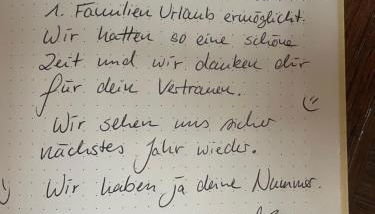 1. Familien Urlaub ermöglicht.
Wir hatten so eine schöne
Zeit und wir danken dir
für dein Vertrauen.
Wir sehen uns sicher
nächstes Jahr wieder.
Wir haben ja deine Nummer.